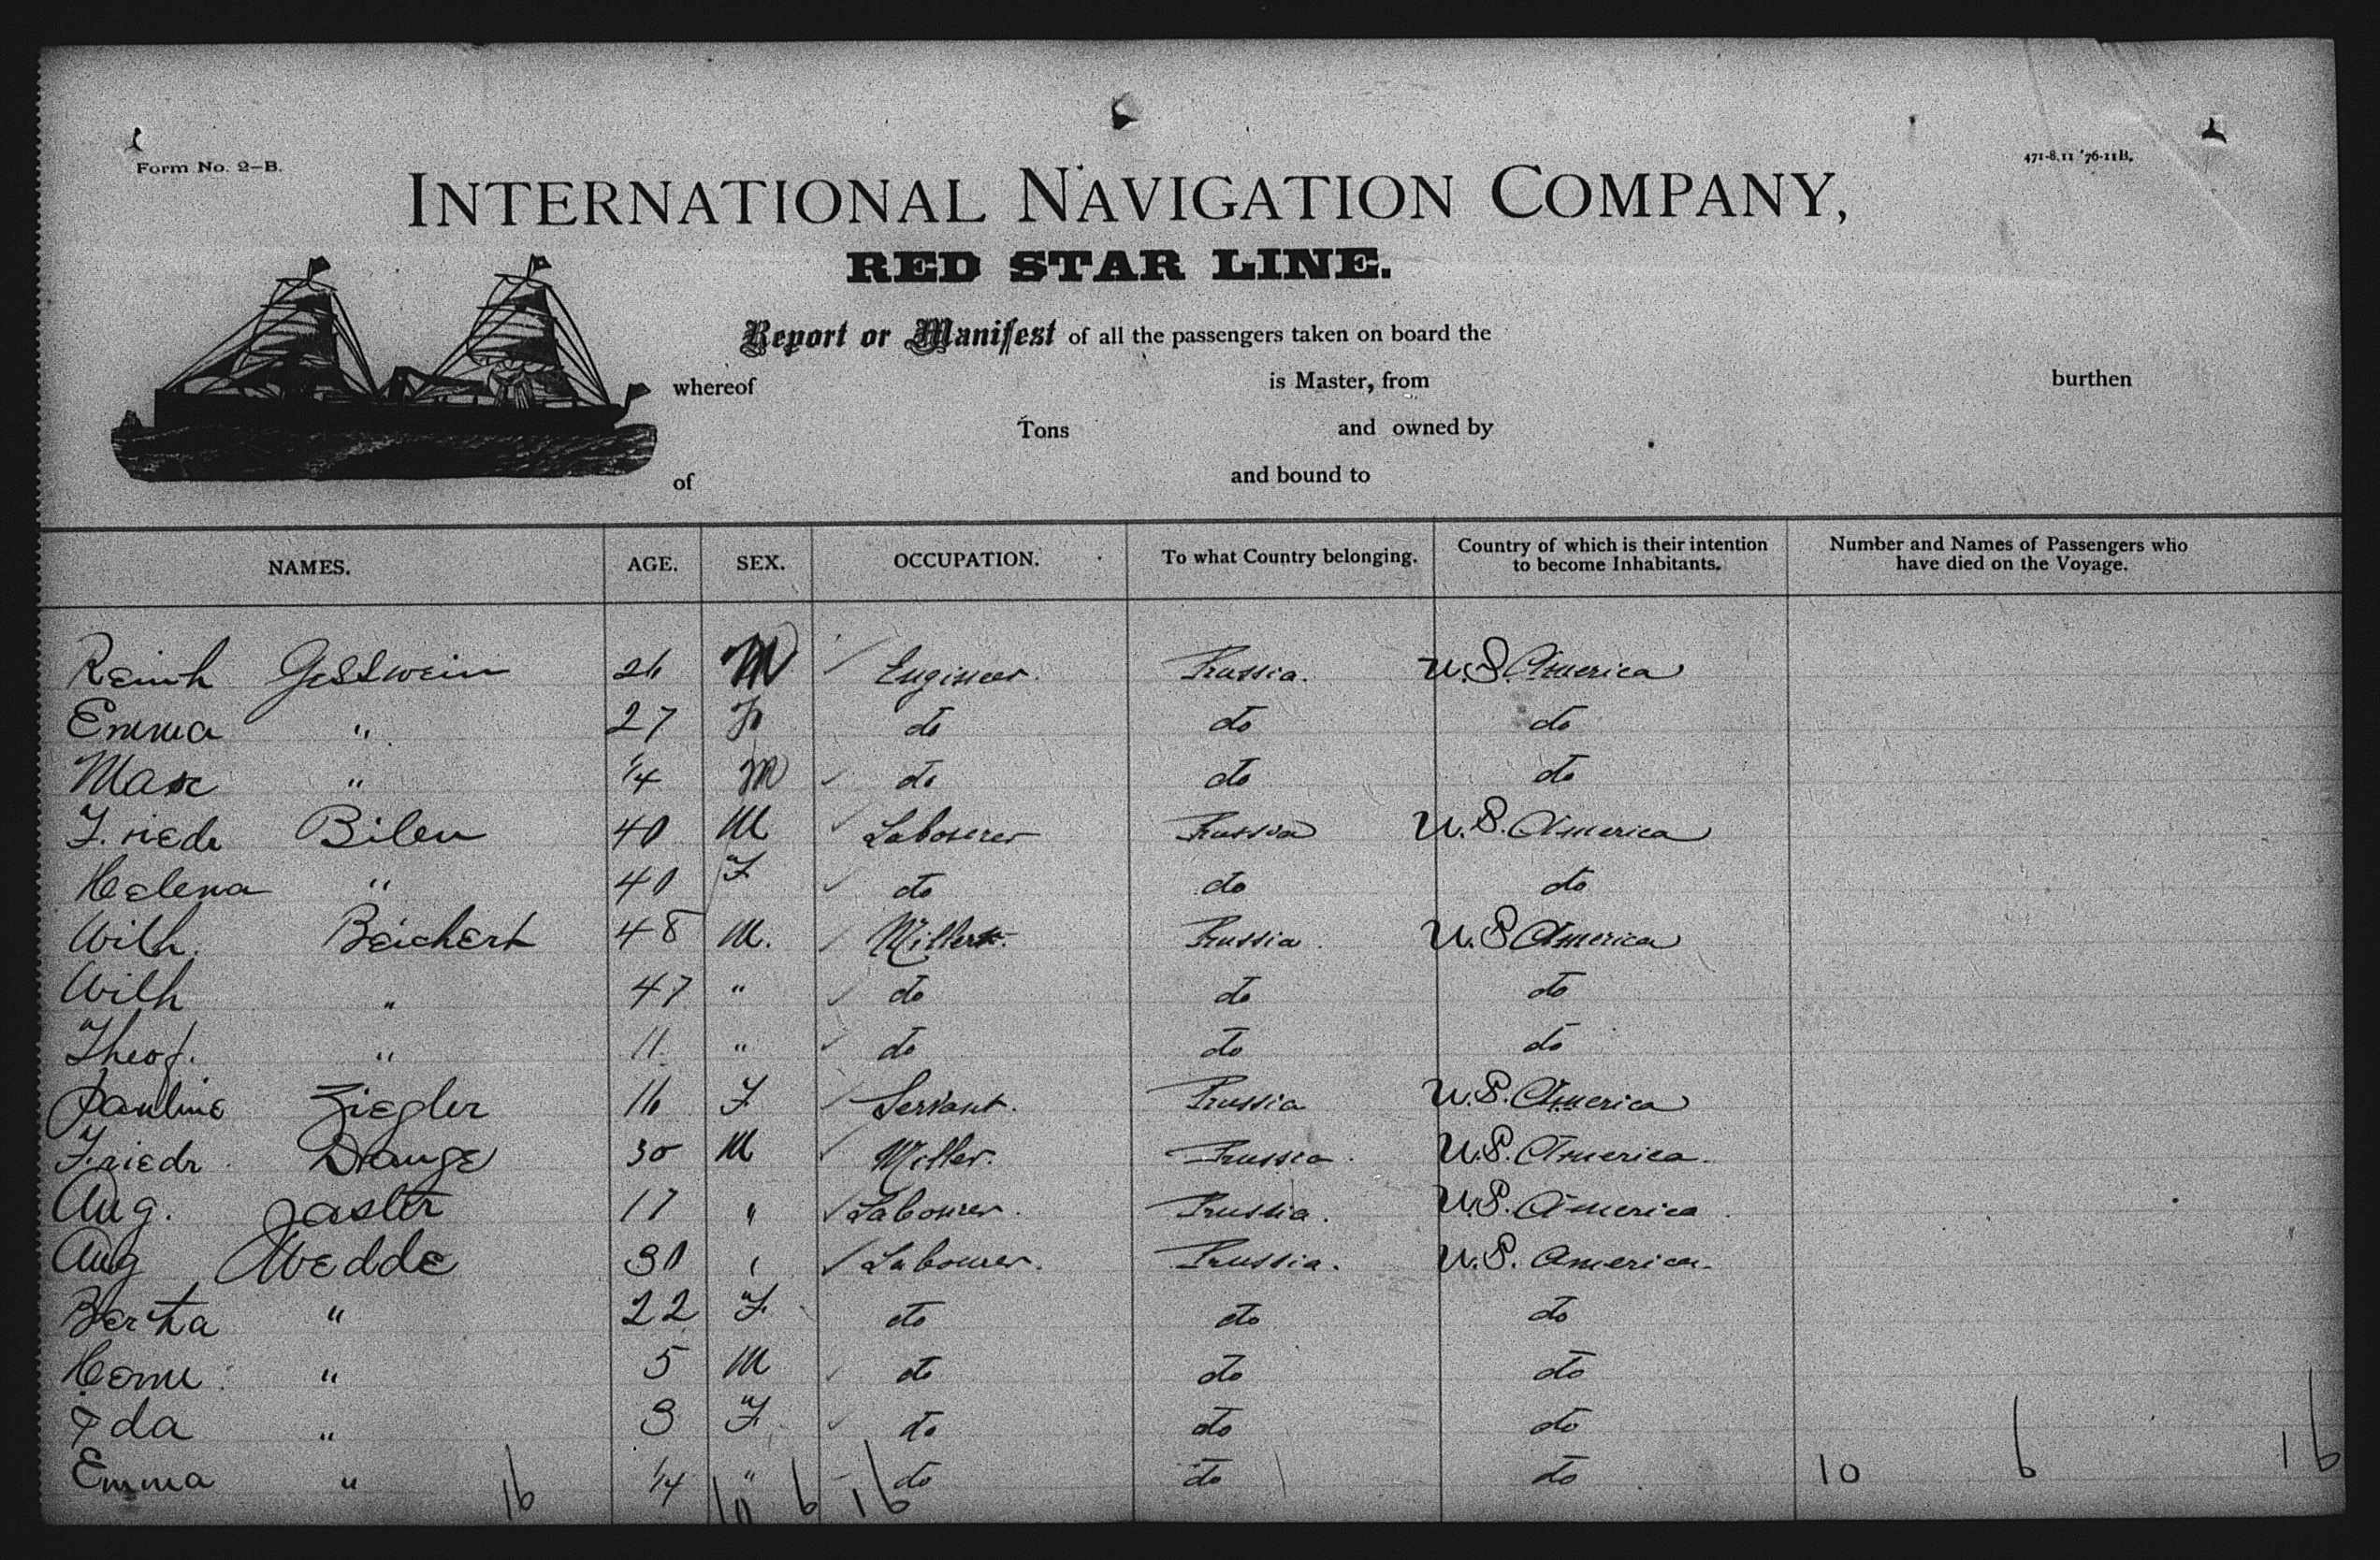 Form No. 2-B.
471-8, 11 '76-11B.
INTERNATIONAL NAVIGATION COMPANY,
RED STAR LINE.
Report or Manifest of all the passengers taken on board the
whereof is Master, from burthen
Tons and owned by
of and bound to
NAMES. AGE. SEX. OCCUPATION. To what Country belonging. Country of which is their intention to become Inhabitants. Number and Names of Passengers who have died on the Voyage.
Reinh Gesswein 26 M Engineer. Prussia. U.S. America
Emma " 27 F do do do
Max " 1/4 M do do do
Friedr Bilen 40 M Labourer Prussia U.S. America
Helena " 40 F do do do
Wilh. Beichert 48 M. Miller. Prussia. U.S. America
Wilh " 47 " do do do
Theof. " 11 " do do do
Pauline Ziegler 16 F Servant. Prussia U.S. America
Friedr. Drange 30 M Miller. Prussia. U.S. America.
Aug. Jaster 17 " Labourer. Prussia. U.S. America.
Aug Wedde 30 " Labourer. Prussia. U.S. America.
Bertha " 22 F. do do do
Herm: " 5 M do do do
Ida " 3 F. do do do
Emma " 1/4 " do do do 10 6 16
16 10 6 16